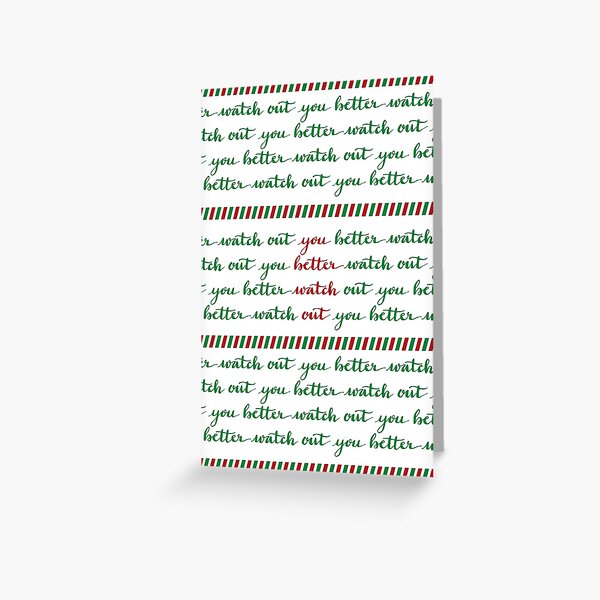 er watch out you better watch
tch out you better watch out y
you better watch out you bett
better watch out you better w
er watch out you better watch
tch out you better watch out y
you better watch out you bett
better watch out you better w
er watch out you better watch
tch out you better watch out y
you better watch out you bett
better watch out you better w